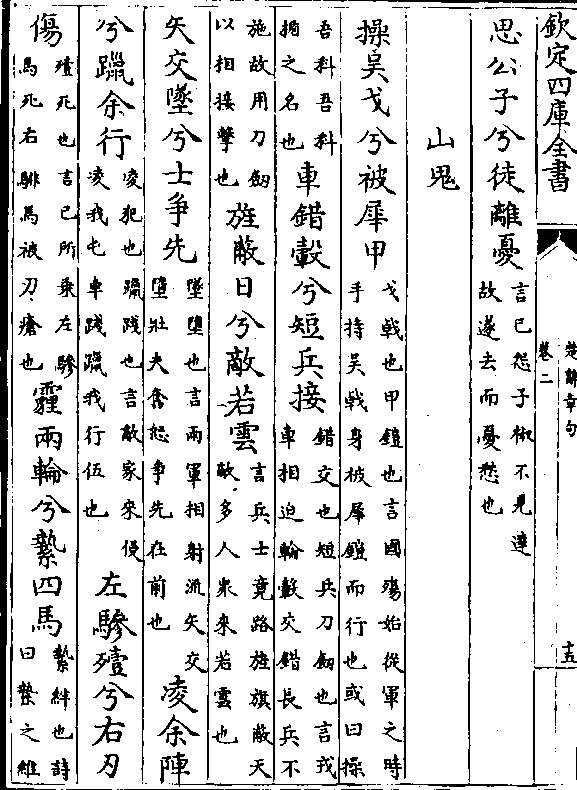 欽定四庫全書
楚辭章句
卷二
十五
思公子兮徒離憂言已怨子椒不見達故遂去而憂愁也
山鬼
操吳戈兮被犀甲戈戟也甲鎧也言國殤始從軍之時手持吳戟身被犀鎧而行也或曰操
吾科吾科楯之名也車錯轂兮短兵接錯交也短兵刀劒也言戎車相迫輪轂交錯長兵不
施故用刀劒以相接擊也旌敝日兮敵若雲言兵士竟路旌旗敝天敵多人衆來若雲也
矢交墜兮士争先墜墮也言兩軍相射流矢交墮壯夫奮怒争先在前也凌余陣
兮躐余行凌犯也躐踐也言敵家來侵凌我屯車踐躐我行伍也左驂殪兮右刃
傷殪死也言已所乗左驂馬死右騑馬被刃瘡也霾兩輪兮縶四馬縶絆也詩曰縶之維